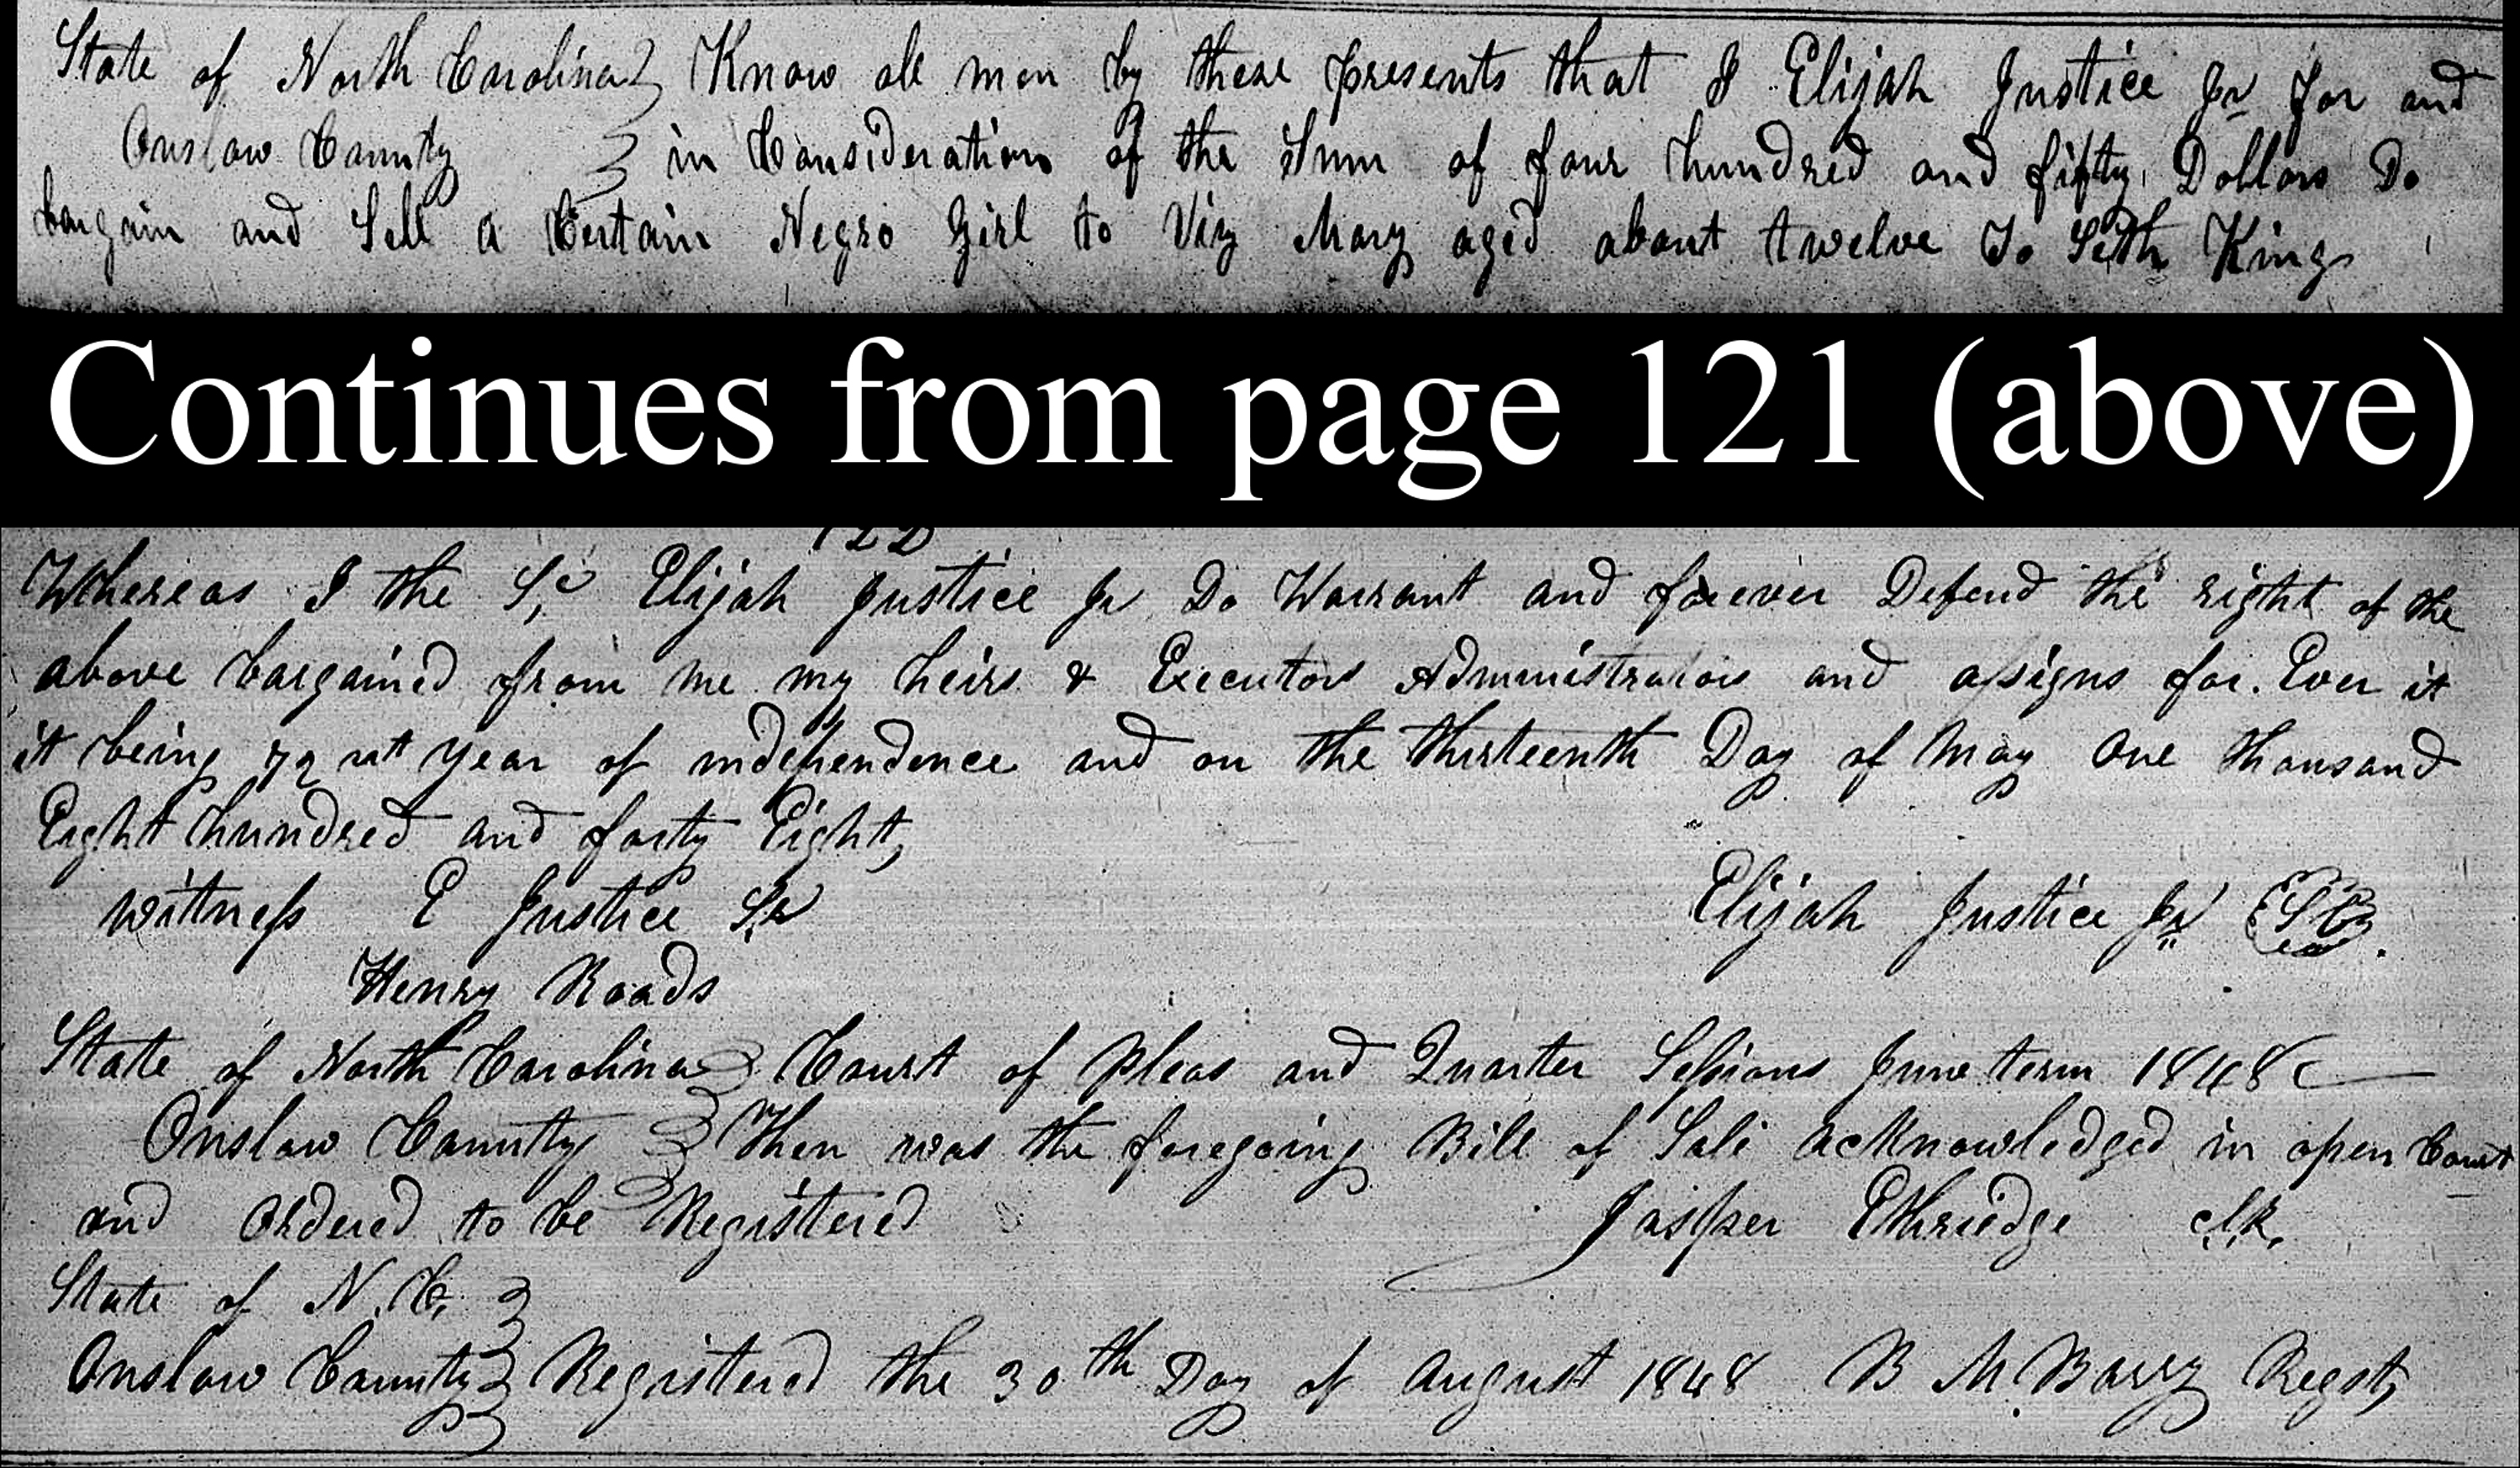 State of North Carolina Know all men by these presents that I Elijah Justice Jr for and
Onslow County in Consideration of the Sum of four hundred and fifty Dollars Do
bargain and Sell a Certain Negro Girl to Viz Mary aged about twelve To Seth King
Continues from page 121 (above)
122
Whereas I the Sd Elijah Justice Jr Do Warrant and forever Defend the right of the
above bargained from me my heirs & Executors Administrators and assigns for. Ever it
it being 72 year of independence and on the thirteenth Day of May One thousand
Eight hundred and forty Eight,
witness E Justice Sr Elijah Justice Jr
Henry Roads
State of North Carolina Court of Pleas and Quarter Sessions June term 1848
Onslow County Then was the foregoing Bill of Sale acknowledged in open Court
and Ordered to be Registered Jasper Ethridge clk.
State of N. C.
Onslow County Registered the 30th Day of August 1848 B M Barry Regst,